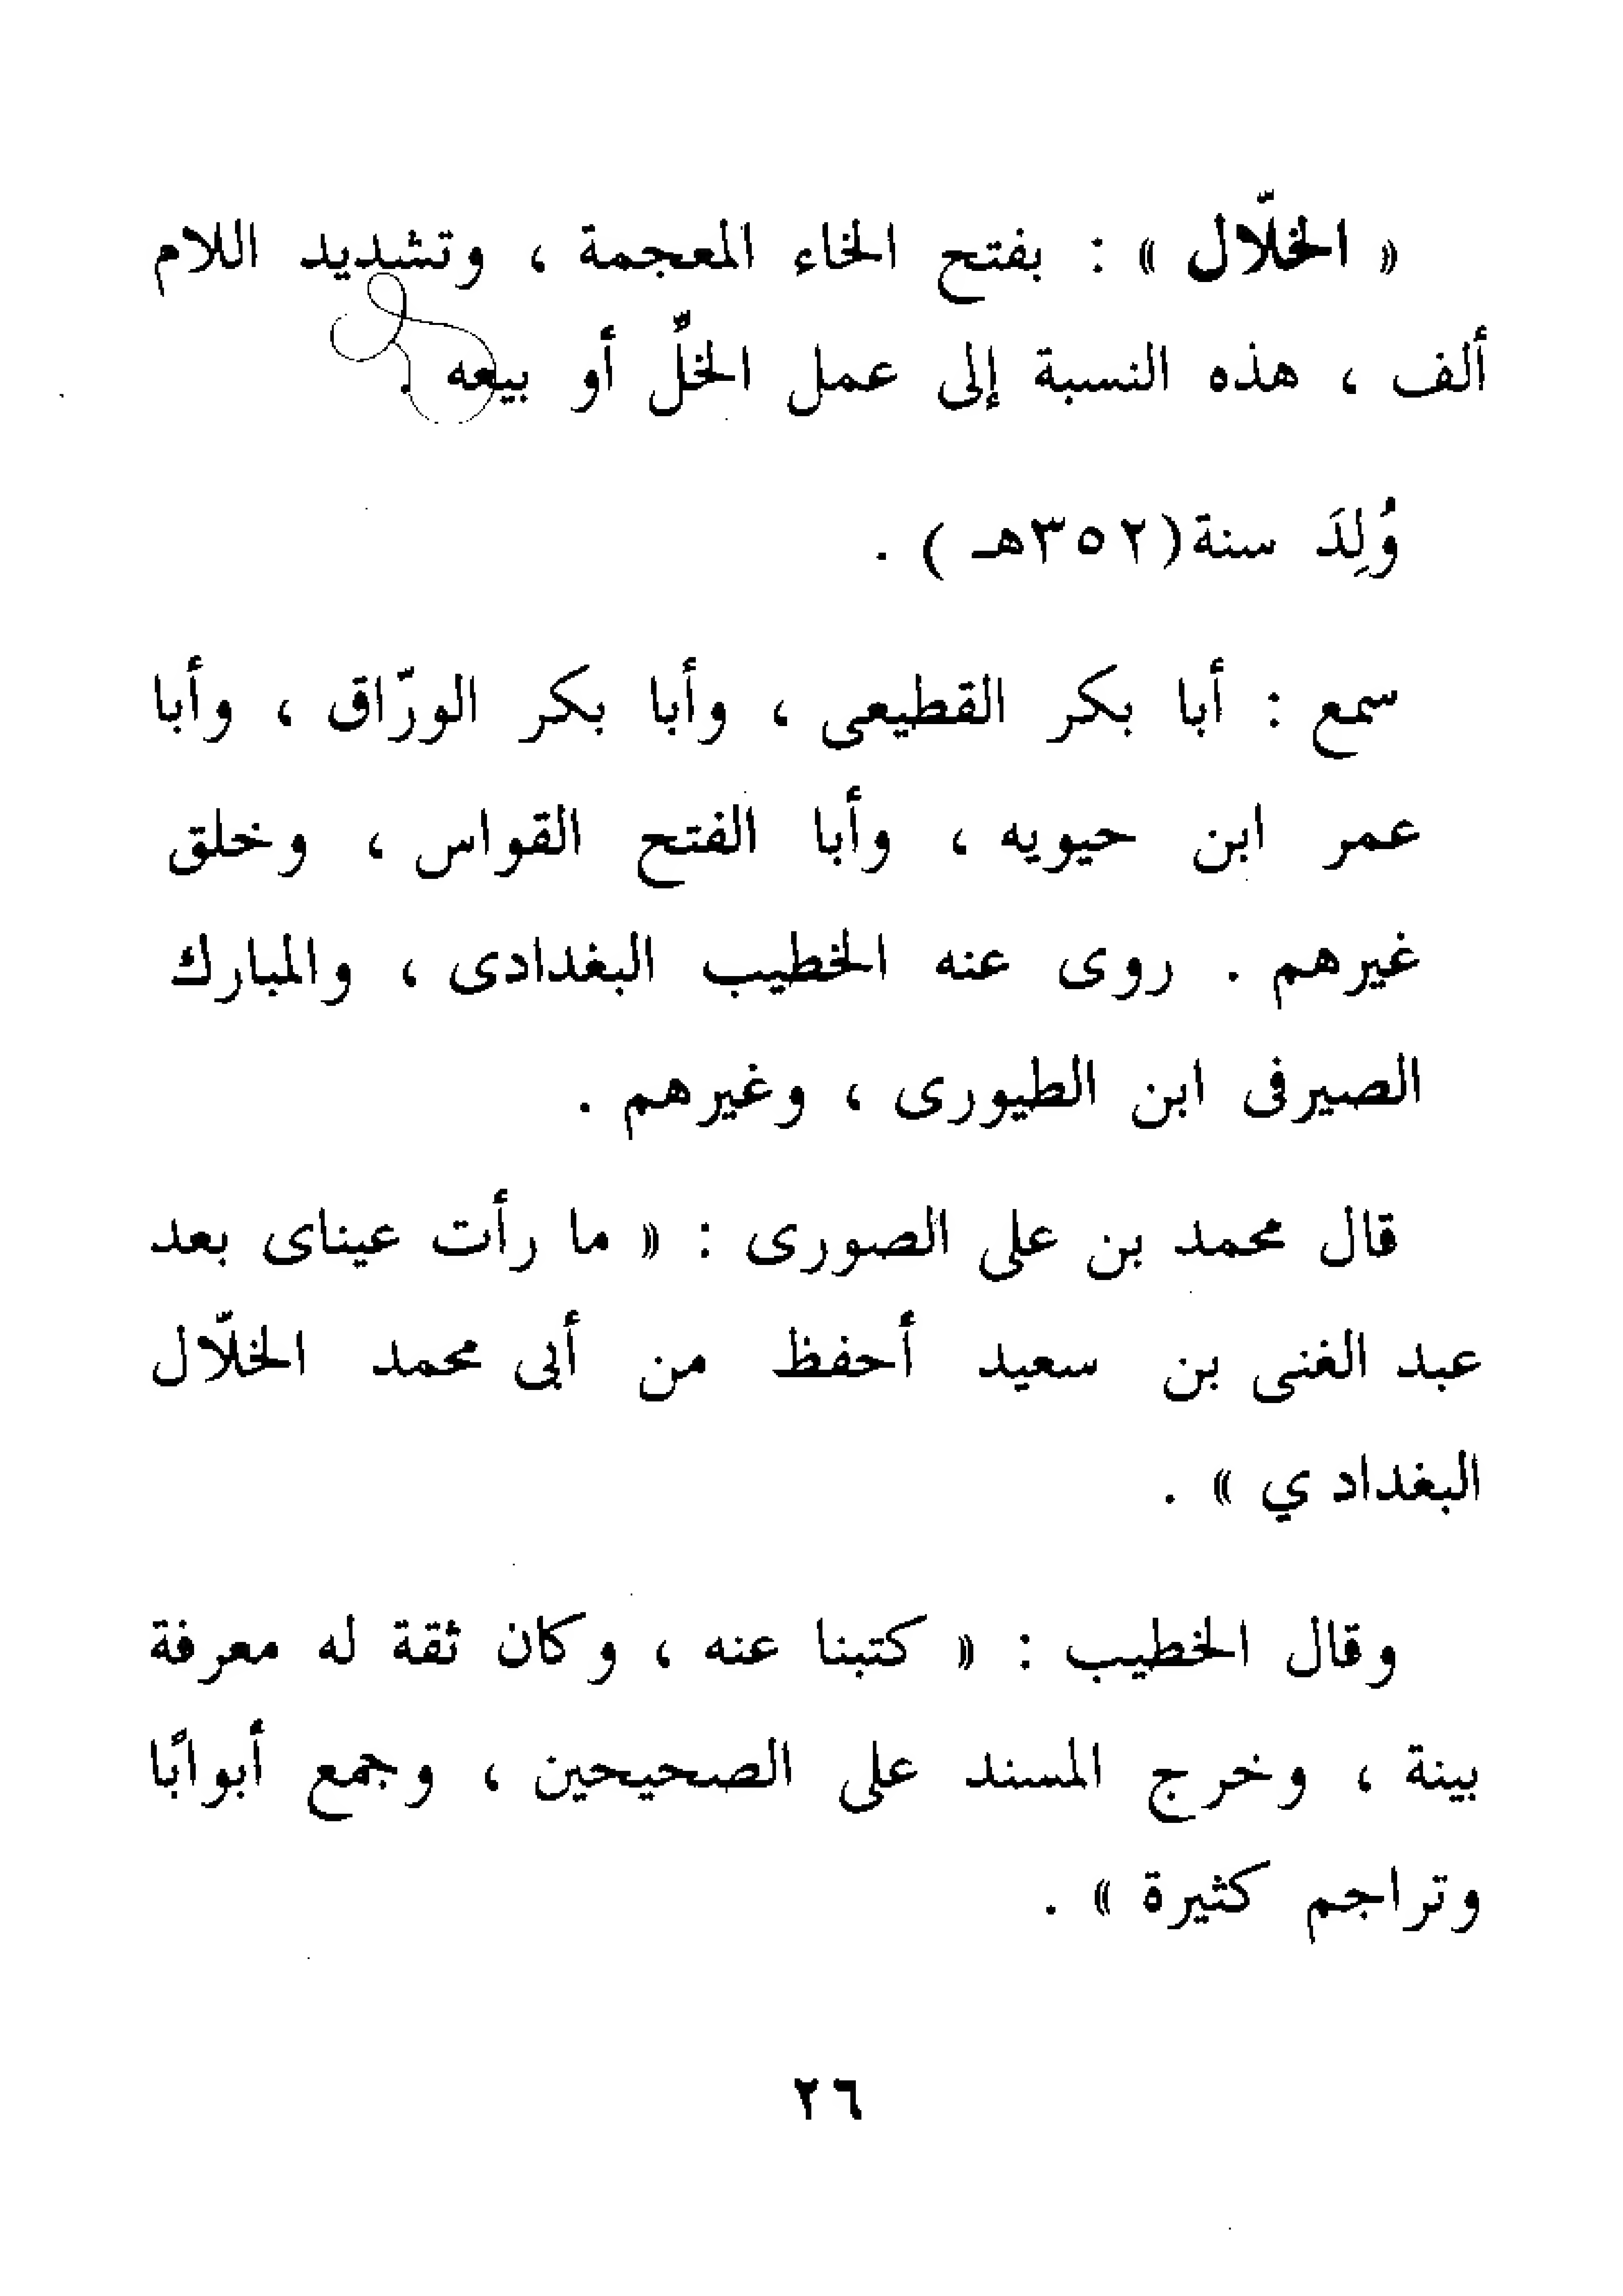 « الخلّال » : بفتح الخاء المعجمة ، وتشديد اللام
ألف ، هذه النسبة إلى عمل الخلِّ أو بيعه .
وُلِدَ سنة(٣٥٢هـ ) .
سمع : أبا بكر القطيعى ، وأبا بكر الورّاق ، وأبا
عمر ابن حيويه ، وأبا الفتح القواس ، وخلق
غيرهم . روى عنه الخطيب البغدادى ، والمبارك
الصيرفى ابن الطيورى ، وغيرهم .
قال محمد بن على الصورى : « ما رأت عيناى بعد
عبد الغنى بن سعيد أحفظ من أبى محمد الخلّال
البغدادي » .
وقال الخطيب : « كتبنا عنه ، وكان ثقة له معرفة
بينة ، وخرج المسند على الصحيحين ، وجمع أبوابًا
وتراجم كثيرة » .
٢٦